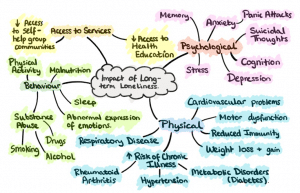 ↓ Access to Self-
help group
communities
Access to Services
↓ Access to
Health
Education
Memory
Anxiety
Panic Attacks
Suicidal
Thoughts
Psychological
Cognition
Depression
Stress
Physical
Activity
Malnutrition
Behaviour
Impact of Long-
term Loneliness.
Sleep
Substance
Abuse
Abnormal expression
of emotions.
Smoking
Drugs
Alcohol
Cardiovascular problems
Motor dysfunction
Physical
Reduced Immunity
Respiratory Disease
Weight loss & gain
↑ Risk of Chronic
Illness
Rheumatoid
Arthritis
Hypertension
Metabolic Disorders
(Diabetes)